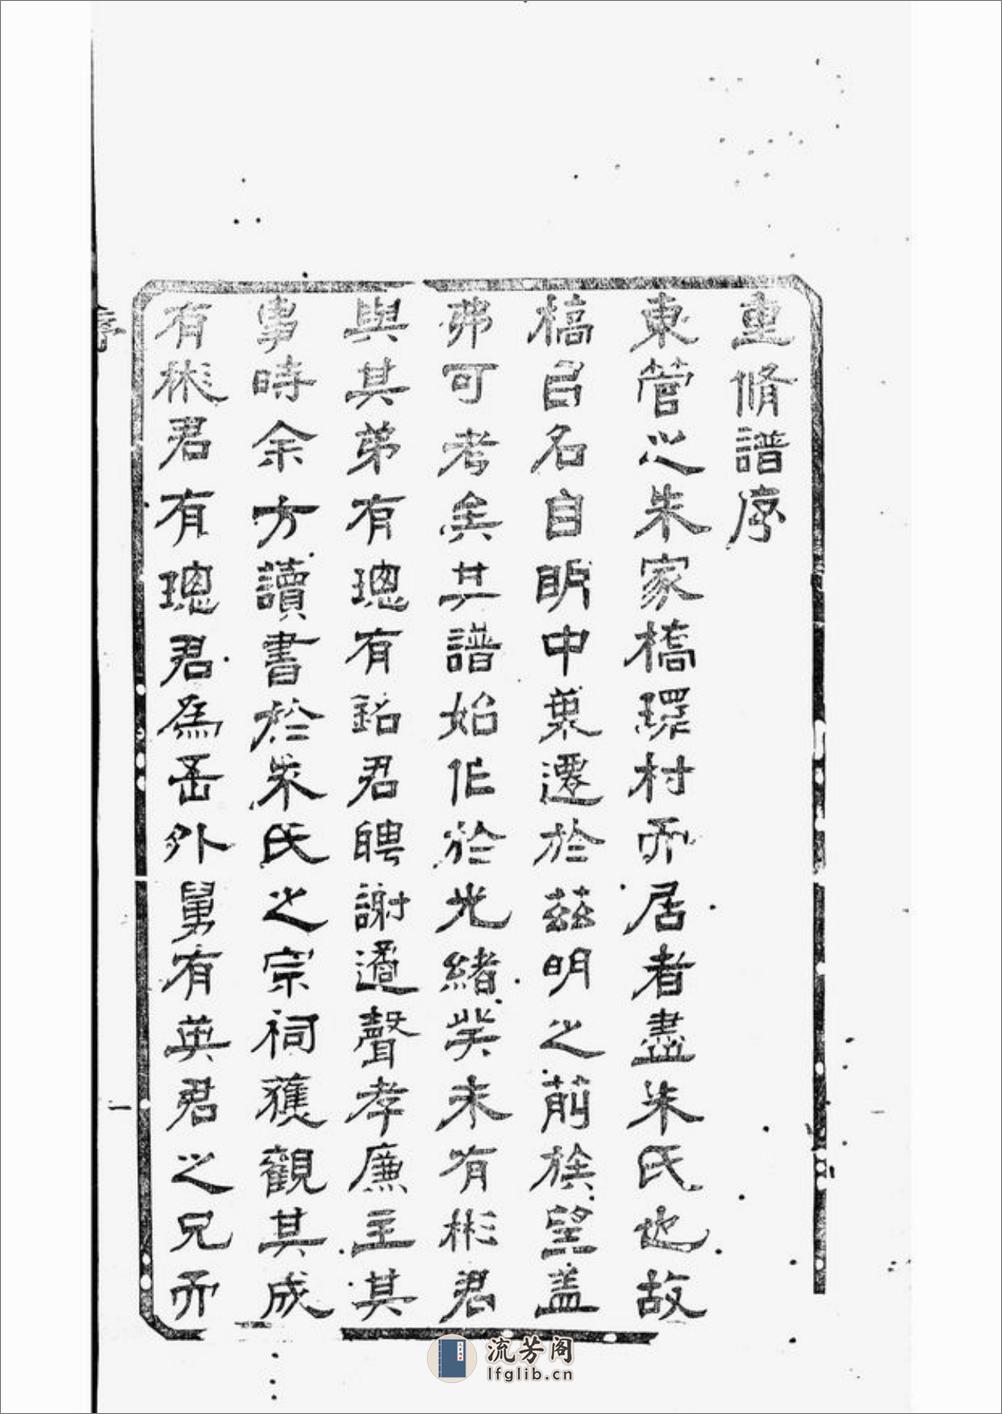 重脩譜序
東管之朱家橋環村而居者盡朱氏也故
橋㠯名自明中葉遷於茲明之前族望盖
弗可考矣其譜始作於光緒癸未有彬君
與其弟有璁有銘君聘謝遹聲孝廉主其
事時余方讀書於朱氏之宗祠獲觀其成
有彬君有璁君為岳外舅有英君之兄而
序
一
流芳阁
lfglib.cn